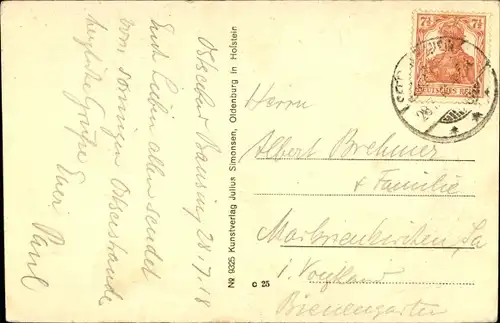 Ostseebad Bansin 28.7.18
Euch Lieben allen sendet
vom sonnigen Ostseestrande
herzliche Grüße Euer
Paul
No 9325 Kunstverlag Julius Simonsen, Oldenburg in Holstein
c 25
7½ 7½
DEUTSCHES REICH
28
Herrn
Albert Brehmer
& Familie
Markneukirchen, Sa
i. Vogtland
Bienengarten